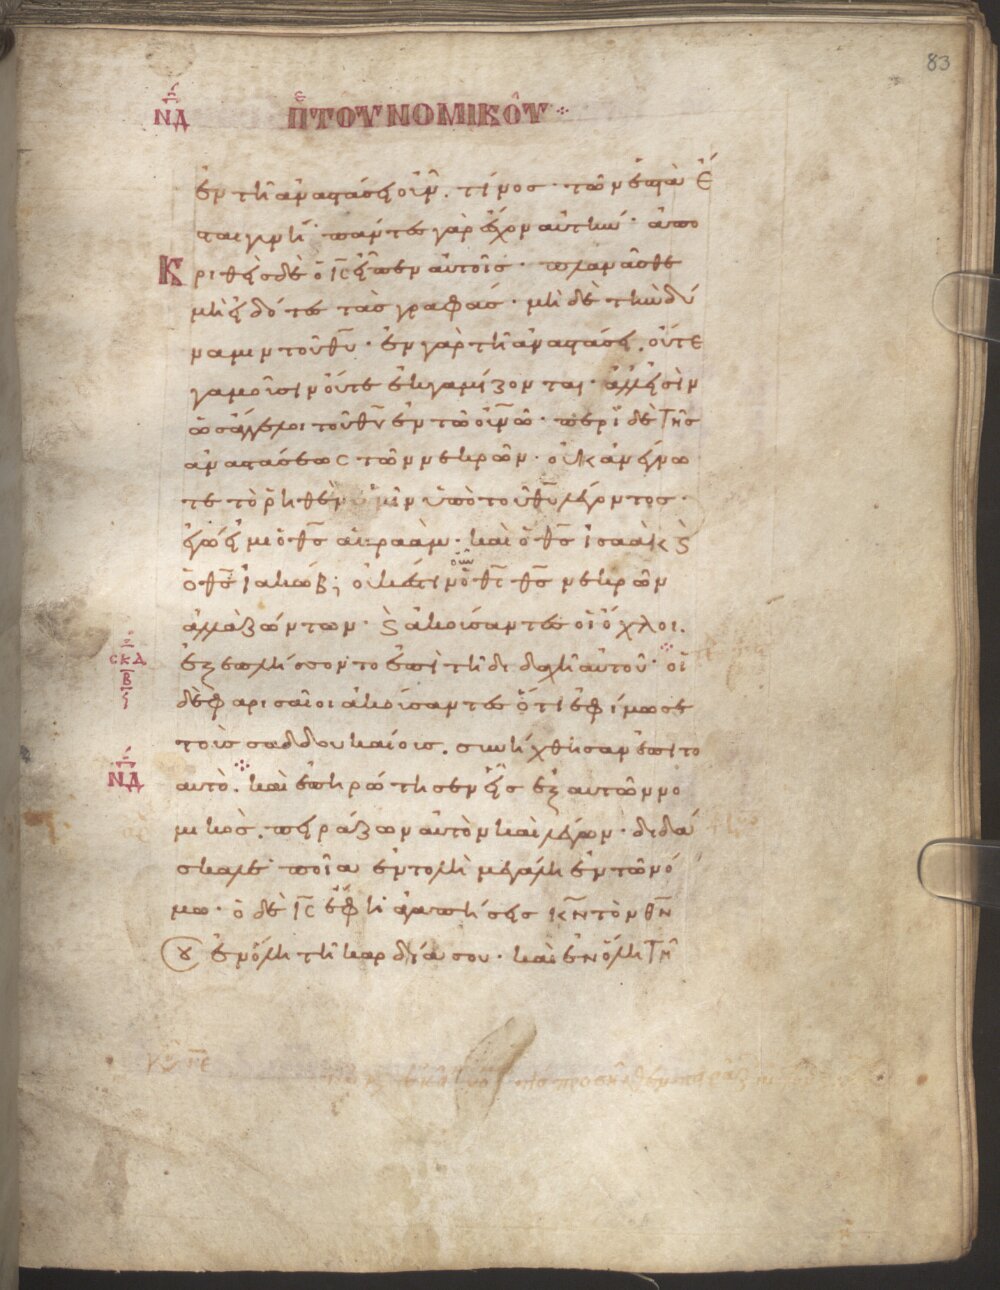 83
ΝΔ ΠΤΟΥ ΝΟΜΙΚΟΥ
ἐν τῆ ἀναστάσει οὖν. τίνος τῶν ἑπτὰ ἔ
σται γυνή· πάντες γὰρ ἔσχον αὐτήν· ἀπο
Κριθεὶς δὲ ὁ ΙC εἶπεν αὐτοῖς· πλανᾶσθε
μὴ εἰδότες τὰς γραφάς· μὴ δὲ τὴν δύ
ναμιν τοῦ θυ· ἐν γὰρ τῆ ἀναστάσει. οὔτε
γαμοῦσιν οὔτε ἐκγαμίζονται· ἀλλ εἰσὶν
ὡς ἄγγελοι τοῦ θυ ἐν τῶ οὐνῶ· περὶ δὲ τῆς
ἀναστάσεως τῶν νεκρῶν· οὐκ ἀνέγνω
τε τὸ ῥηθὲν ὑμῖν ὑπὸ τοῦ θυ λέγοντος·
ἐγώ εἰμι ὁ θς ἀβραὰμ· καὶ ὁ θς ἰσαὰκ ϗ
ὁ θς ἰακώβ; οὐκ ἔστιν ὁ θς θς νεκρῶν
ἀλλὰ ζώντων· ϗ ἀκούσαντες οἱ ὄχλοι.
ἐξεπλήσσοντο ἐπὶ τῆ διδαχῆ αὐτοῦ· οἱ
CΚΔ
Β
δὲ φαρισαῖοι ἀκούσαντες ὅτι ἐφίμωσε
τοὺς σαδδουκαίους. συνήχθησαν ἐπὶ το
ΝΔ
αὐτὸ. καὶ ἐπηρώτησεν εἷς ἐξ αυτῶν νο
μικὸς. πειράζων αὐτὸν καὶ λέγων· διδά
σκαλε ποῖα ἐντολὴ μεγάλη ἐν τῶ νό
μω· ὁ δὲ ΙC ἔφη ἀγαπήσεις ΚΝ τὸν ΘΝ
σου ἐν ὅλη τῆ καρδία σου· καὶ ἐν ὅλη τῆ